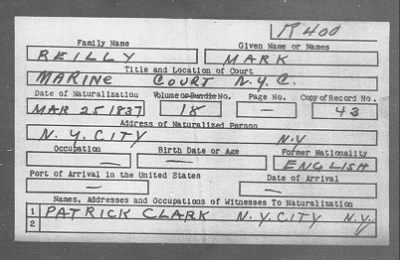 R 400
Family Name Given Name or Names
REILLY MARK
Title and Location of Court
MARINE COURT N.Y.C.
Date of Naturalization Volume or Bundle No. Page No. Copy of Record No.
MAR 25 1837 18 — 43
Address of Naturalized Person
N.Y. CITY N.Y
Occupation Birth Date or Age Former Nationality
— — ENGLISH
Port of Arrival in the United States Date of Arrival
— —
Names, Addresses and Occupations of Witnesses To Naturalization
1 PATRICK CLARK N.Y. CITY N.Y.
2